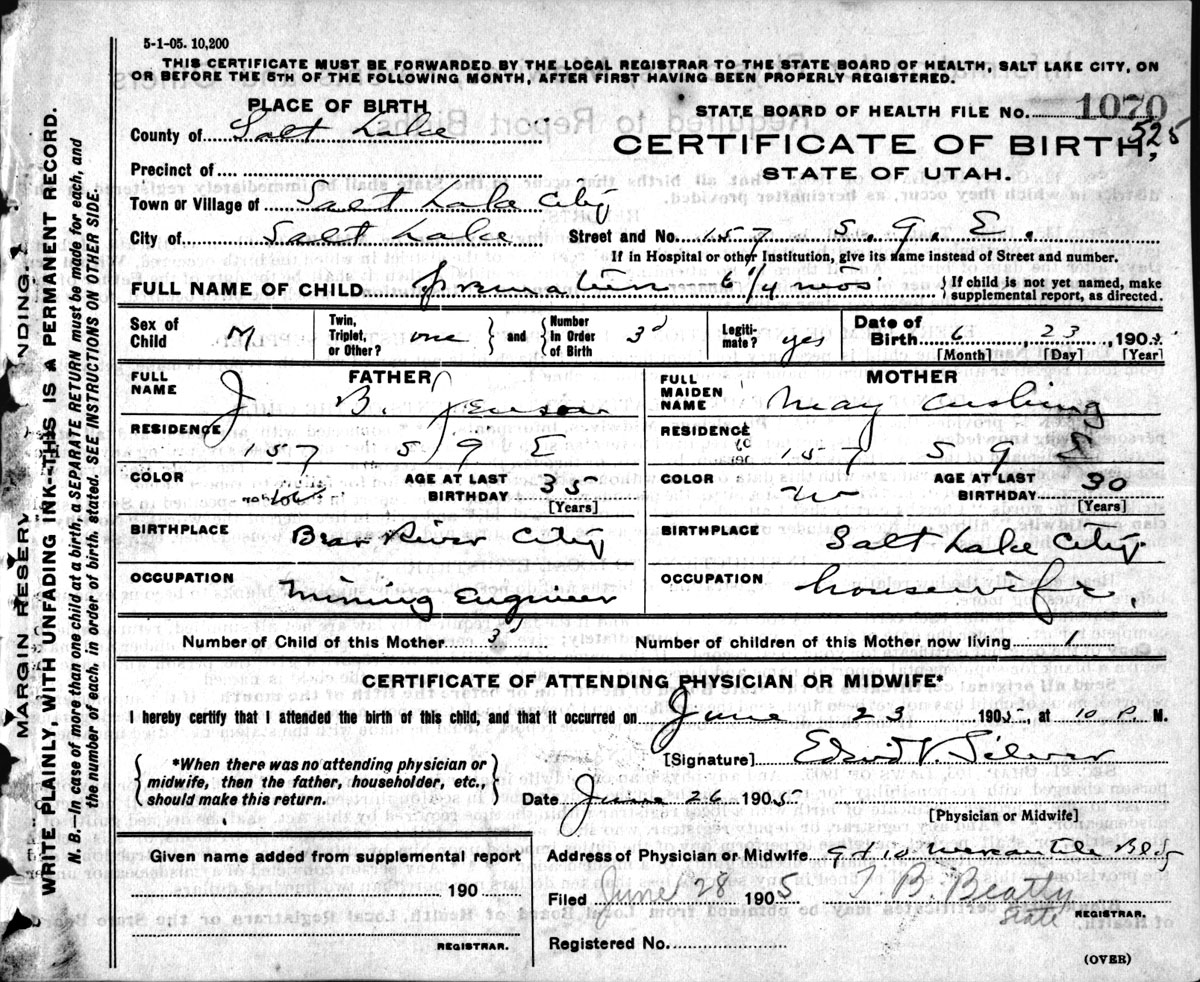 5-1-05. 10,200
THIS CERTIFICATE MUST BE FORWARDED BY THE LOCAL REGISTRAR TO THE STATE BOARD OF HEALTH, SALT LAKE CITY, ON
OR BEFORE THE 5TH OF THE FOLLOWING MONTH, AFTER FIRST HAVING BEEN PROPERLY REGISTERED.
PLACE OF BIRTH
STATE BOARD OF HEALTH FILE No. 1070
525
County of Salt Lake
CERTIFICATE OF BIRTH,
STATE OF UTAH.
Precinct of
Town or Village of Salt Lake City
City of Salt Lake Street and No. 157 S. 9. E.
If in Hospital or other Institution, give its name instead of Street and number.
FULL NAME OF CHILD 6 1/4 mos { If child is not yet named, make
supplemental report, as directed.
Sex of Child M Twin, Triplet, or Other? one } and { Number In Order of Birth 3d Legiti-mate? yes Date of Birth 6, 23, 1905
[Month] [Day] [Year]
FULL NAME FATHER J. B. Jenson
FULL MAIDEN NAME MOTHER May Cushing
RESIDENCE 157 S 9 E
RESIDENCE 157 S 9 E
COLOR AGE AT LAST BIRTHDAY 35 [Years]
COLOR W AGE AT LAST BIRTHDAY 30 [Years]
BIRTHPLACE Bear River City
BIRTHPLACE Salt Lake City.
OCCUPATION Mining Engineer
OCCUPATION housewife.
Number of Child of this Mother 3d Number of children of this Mother now living 1
CERTIFICATE OF ATTENDING PHYSICIAN OR MIDWIFE*
I hereby certify that I attended the birth of this child, and that it occurred on June 23 1905, at 10 P. M.
{ *When there was no attending physician or
midwife, then the father, householder, etc.,
should make this return. }
[Signature] Silver
Date June 26 1905
[Physician or Midwife]
Given name added from supplemental report
190
REGISTRAR.
Address of Physician or Midwife Mercantile Bldg
Filed June 28 1905 T. B. Beatty
State REGISTRAR.
Registered No.
(OVER)
MARGIN RESERV NDING.
WRITE PLAINLY, WITH UNFADING INK—THIS IS A PERMANENT RECORD.
N. B.—In case of more than one child at a birth, a SEPARATE RETURN must be made for each, and
the number of each, in order of birth, stated. SEE INSTRUCTIONS ON OTHER SIDE.